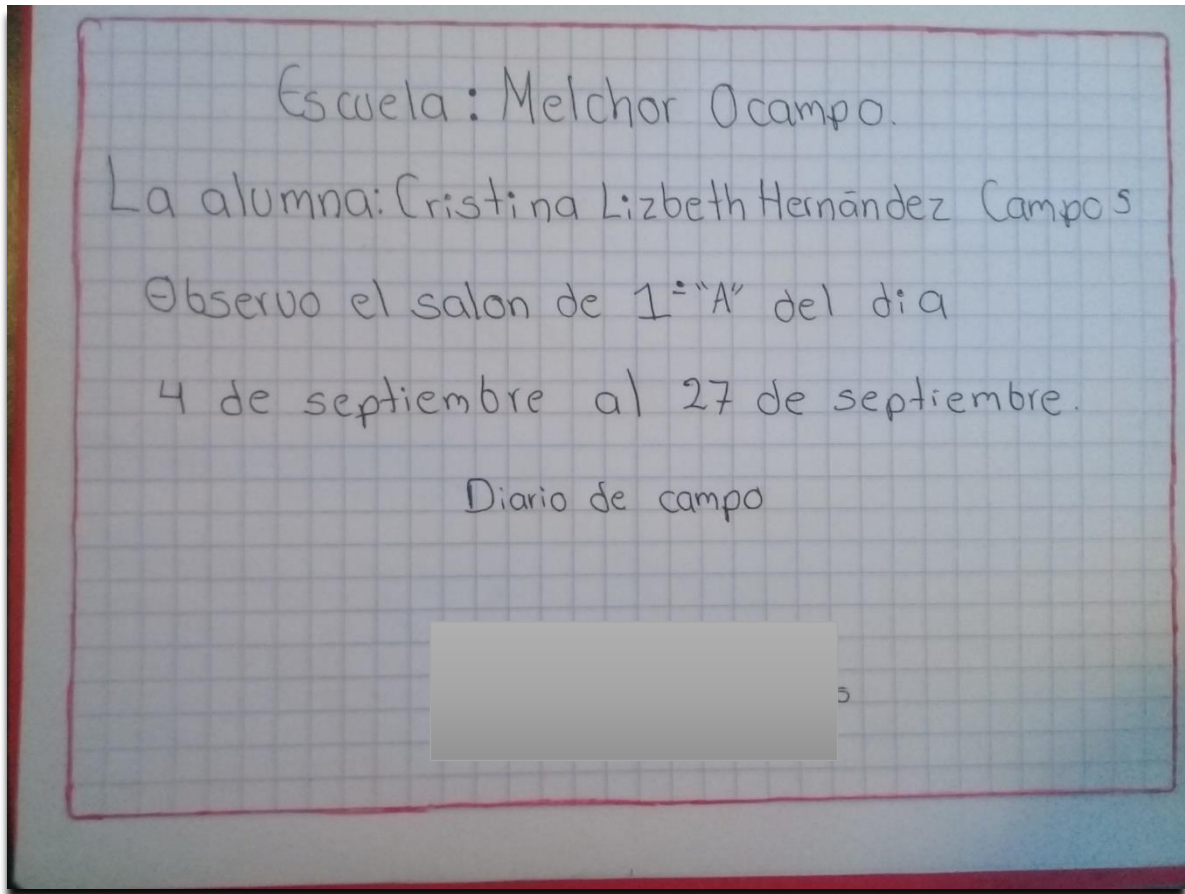 Escuela: Melchor Ocampo.
La alumna: Cristina Lizbeth Hernández Campos
Observo el salon de 1° "A" del dia
4 de septiembre al 27 de septiembre.
Diario de campo
s